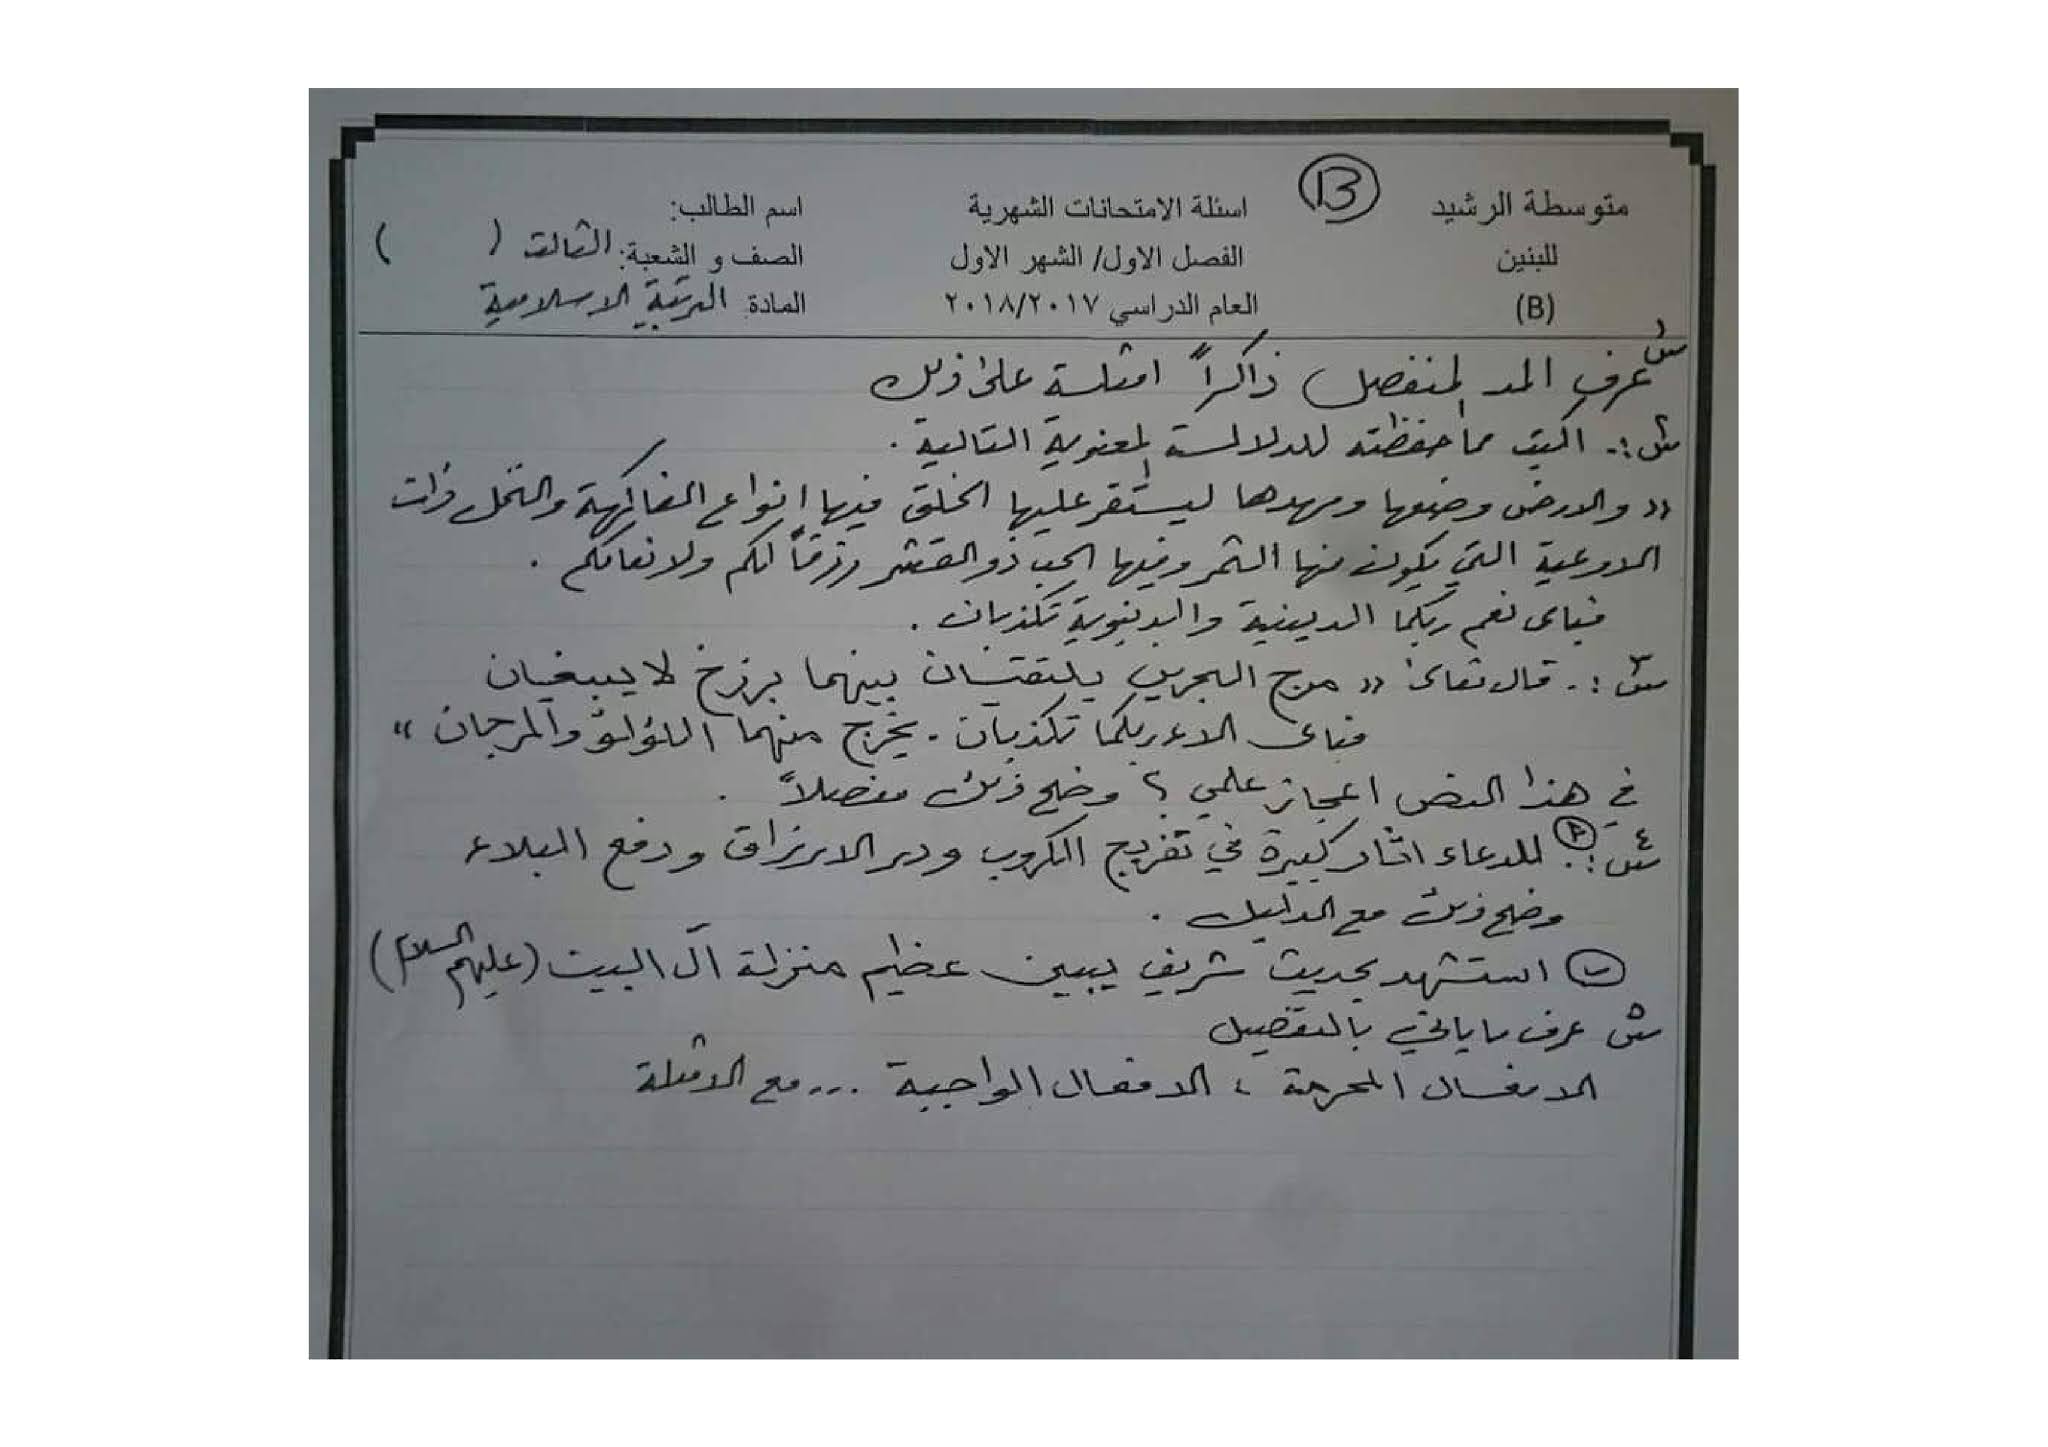 متوسطة الرشيد
للبنين
(B)
B
اسئلة الامتحانات الشهرية
الفصل الاول/ الشهر الاول
العام الدراسي ٢٠١٨/٢٠١٧
اسم الطالب:
الصف و الشعبة: الثالث ( )
المادة: التربية الاسلامية
س١ عرف المد المنفصل ذاكراً امثلة على ذلك
س٢:. اكتب مما حفظته للدلالة المعنوية التالية .
(( والارض وضعها ومهدها ليستقر عليها الخلق فيها انواع الفاكهة والنخل ذات
الاوعية التي يكون منها الثمر وفيها الحب ذو القشر رزقاً لكم ولانعامكم .
فباى نعم ربكما الدينية والدنيوية تكذبان .
س٣:. قال تعالى (( مرج البحرين يلتقيان بينهما برزخ لا يبغيان
فباى الاء ربكما تكذبان . يخرج منهما اللؤلؤ والمرجان ))
في هذا النص اعجاز علمي ؟ وضح ذلك مفصلاً .
س٤: أ للدعاء اثار كبيرة في تفريج الكروب ودر الارزاق ودفع البلاء
وضح ذلك مع الدليل .
ب استشهد بحديث شريف يبين عظيم منزلة آل البيت (عليهم السلام)
س٥ عرف ما ياتي بالتفصيل
الافعال المحرمة ، الافعال الواجبة ... مع الامثلة